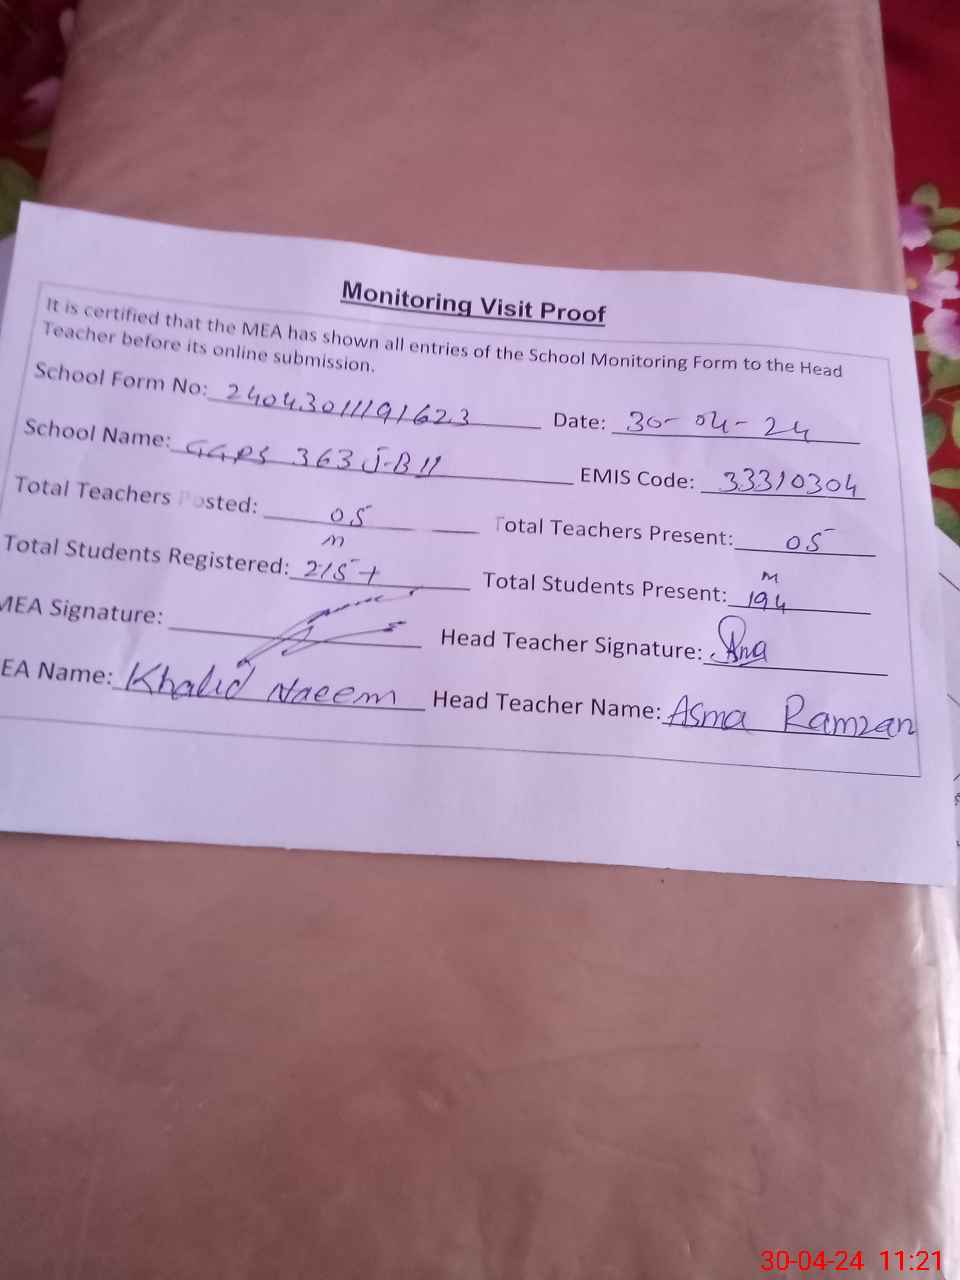 Monitoring Visit Proof
It is certified that the MEA has shown all entries of the School Monitoring Form to the Head
Teacher before its online submission.
School Form No: 24043011191623 Date: 30-04-24
School Name: GGPS 363 J-B II EMIS Code: 33310304
Total Teachers Posted: 05 Total Teachers Present: 05
M M
Total Students Registered: 215+ Total Students Present: 194
MEA Signature: Head Teacher Signature:
EA Name: Khalid Naeem Head Teacher Name: Asma Ramzan
30-04-24 11:21